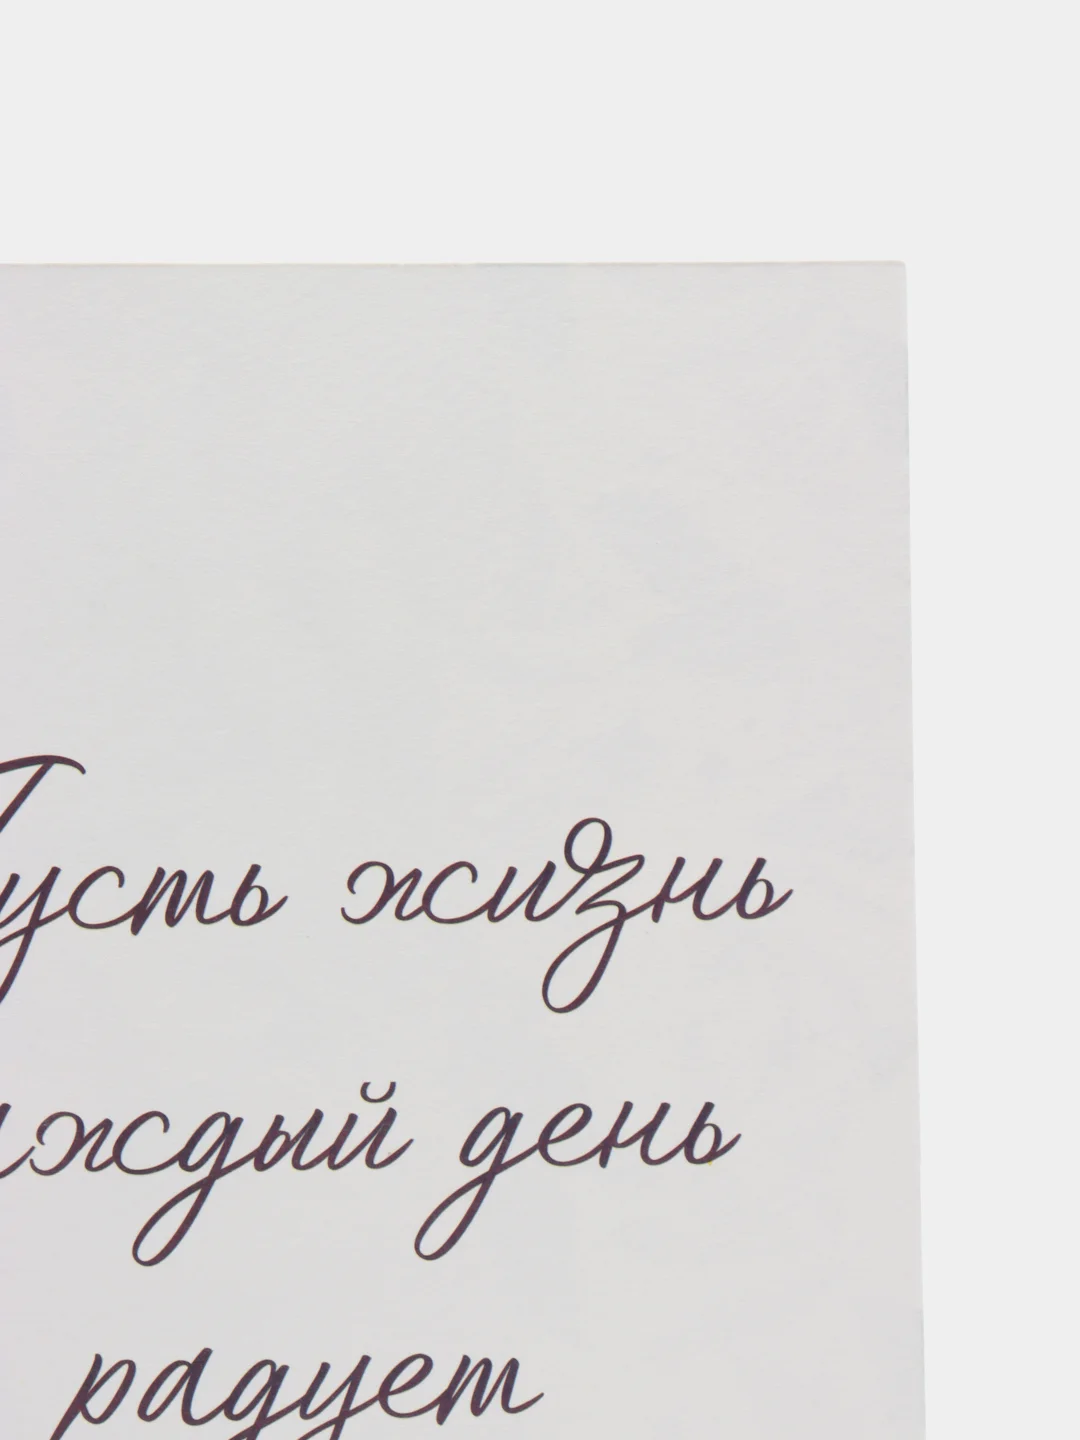 Пусть жизнь
каждый день
радует